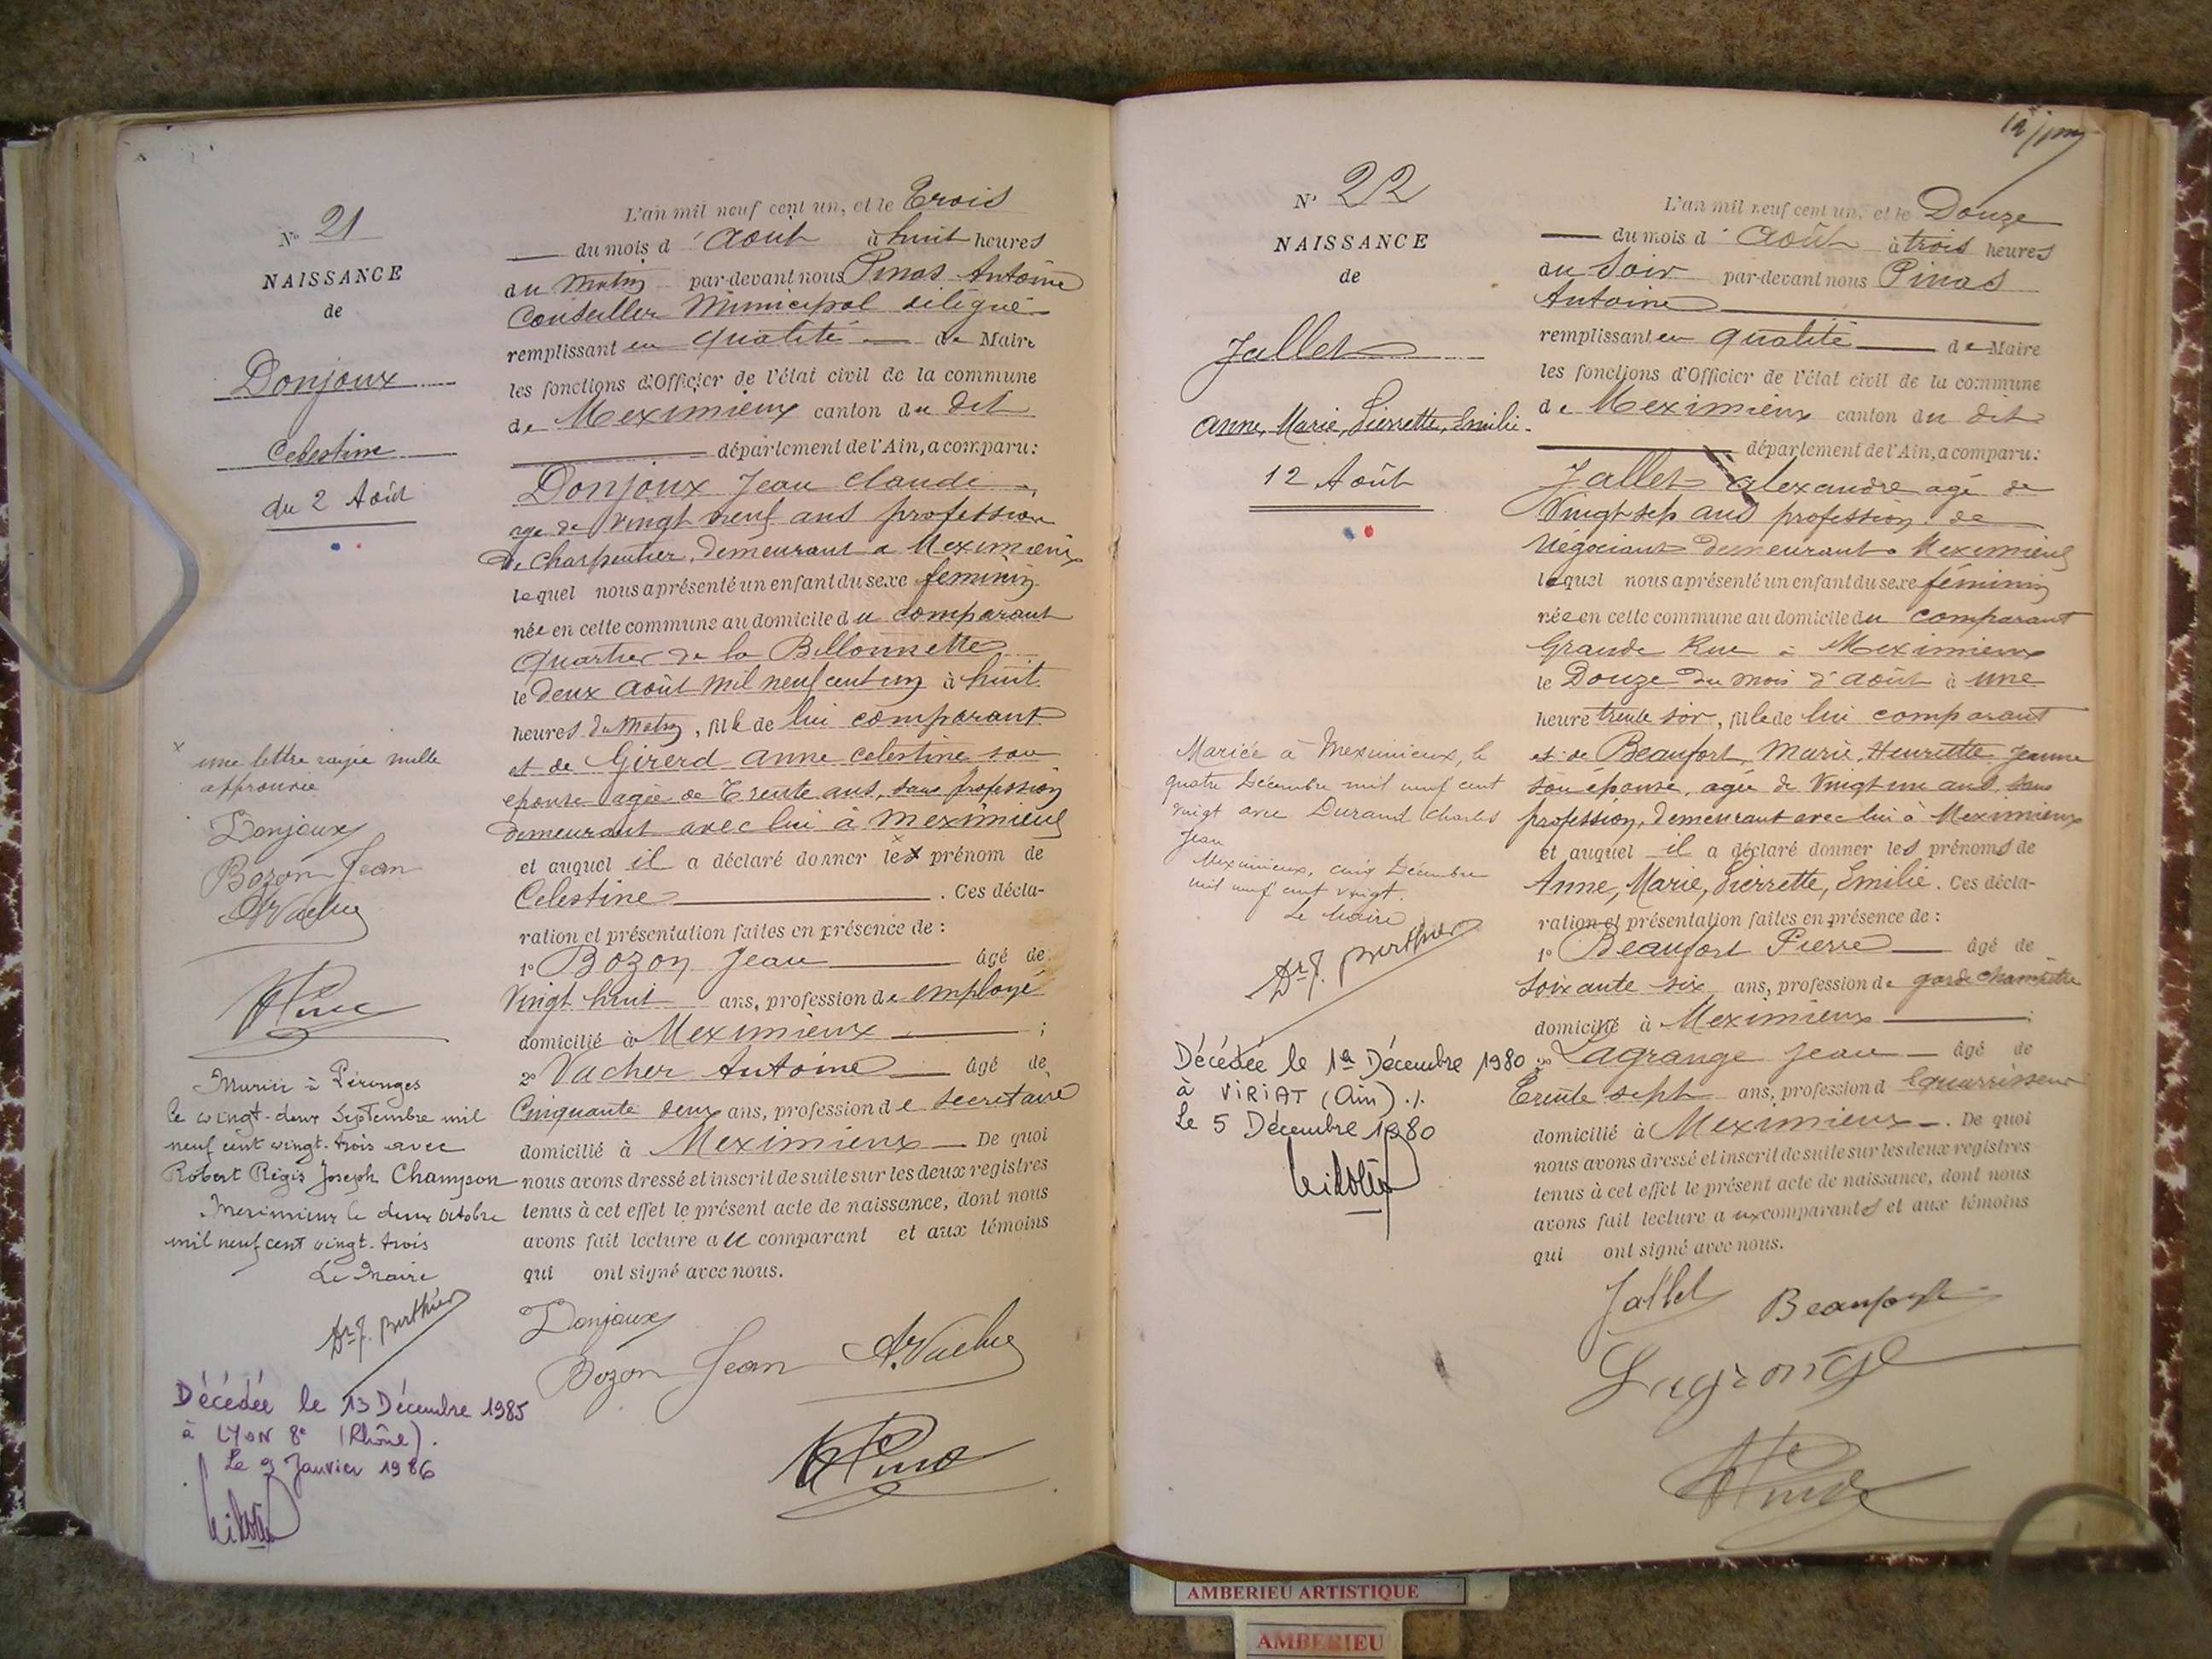 N° 21
NAISSANCE
de
Donjoux
Celestine
du 2 Août
x une lettre rayée nulle
approuvée
Donjoux
Bozon Jean
A. Vacher
Mariée à Pérouges
le vingt-deux Septembre mil
neuf cent vingt-trois avec
Robert Régis Joseph Champson
Meximieux le deux Octobre
mil neuf cent vingt-trois
Le Maire
Dr J. Berthier
Décédée le 13 Décembre 1985
à LYON 8e (Rhône).
Le 9 Janvier 1986
L'an mil neuf cent un, et le Trois
du mois d'Août à huit heures
du Matin par-devant nous Pinas Antoine
Conseiller Municipal délégué
remplissant en qualité de Maire
les fonctions d'Officier de l'état civil de la commune
de Meximieux canton du dit
département de l'Ain, a comparu:
Donjoux Jean Claude
age de vingt neuf ans profession
de charpentier, demeurant a Meximieux
lequel nous a présenté un enfant du sexe féminin
née en cette commune au domicile du comparant
quartier de la Billonnette
le deux Août mil neuf cent un à huit
heures du Matin, fille de lui comparant
et de Girerd Anne Celestine son
epouse agée de Trente ans, sans profession
demeurant avec lui à Meximieux
et auquel il a déclaré donner le x prénom de
Celestine. Ces décla-
ration et présentation faites en présence de :
1° Bozon Jean âgé de
Vingt huit ans, profession de employé
domicilié à Meximieux ;
2° Vacher Antoine âgé de
Cinquante deux ans, profession de secrétaire
domicilié à Meximieux. De quoi
nous avons dressé et inscrit de suite sur les deux registres
tenus à cet effet le présent acte de naissance, dont nous
avons fait lecture au comparant et aux témoins
qui ont signé avec nous.
Donjoux
Bozon Jean A. Vacher
N° 22
NAISSANCE
de
Jallet
Anne, Marie, Pierrette, Emilie
12 Août
Mariée à Meximieux, le
quatre Décembre mil neuf cent
vingt avec Durand Charles
Jean
Meximieux, cinq Décembre
mil neuf cent vingt.
Le Maire
Dr J. Berthier
Décédée le 1er Décembre 1980
à VIRIAT (Ain) ./.
Le 5 Décembre 1980
L'an mil neuf cent un, et le Douze
du mois d'Août à trois heures
du Soir par-devant nous Pinas
Antoine
remplissant en qualité de Maire
les fonctions d'Officier de l'état civil de la commune
de Meximieux canton du dit
département de l'Ain, a comparu:
Jallet Alexandre agé de
Vingt sep ans profession de
Négociant demeurant a Meximieux
lequel nous a présenté un enfant du sexe féminin
née en cette commune au domicile du comparant
Grande Rue à Meximieux
le Douze du mois d'Août à une
heure trente soir, fille de lui comparant
et de Beaufort, Marie, Henriette Jeanne
son épouse, agée de Vingt un ans sans
profession, demeurant avec lui à Meximieux
et auquel il a déclaré donner les prénoms de
Anne, Marie, Pierrette, Emilie. Ces décla-
ration et présentation faites en présence de :
1° Beaufort Pierre âgé de
Soixante six ans, profession de garde champêtre
domicilié à Meximieux ;
2° Lagrange Jean âgé de
Trente sept ans, profession d'équarrisseur
domicilié à Meximieux. De quoi
nous avons dressé et inscrit de suite sur les deux registres
tenus à cet effet le présent acte de naissance, dont nous
avons fait lecture aux comparants et aux témoins
qui ont signé avec nous.
Jallet Beaufort
Lagrange
AMBERIEU ARTISTIQUE
AMBERIEU